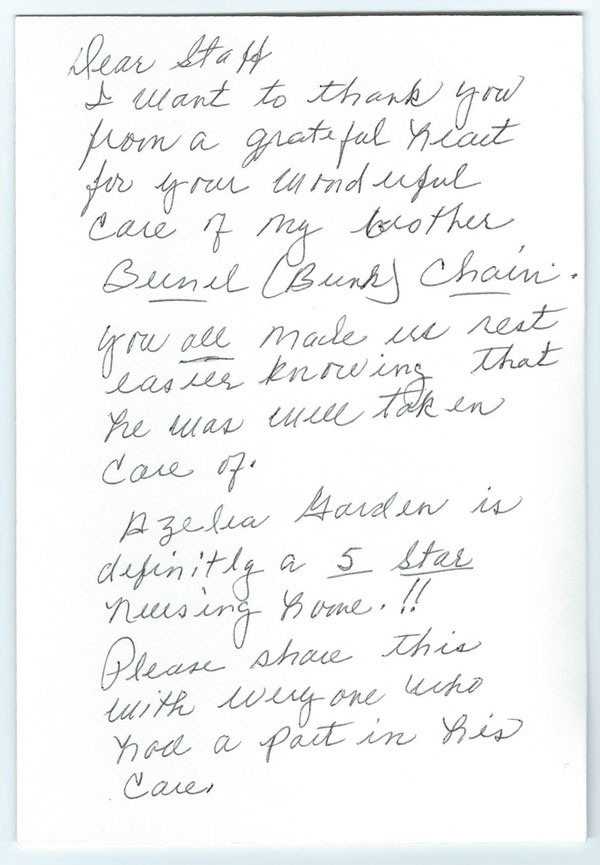 Dear Staff
I want to thank you
from a grateful heart
for your wonderful
care of my brother
Bunel (Bunk) Chain.
you all made us rest
easier knowing that
he was well taken
care of.
Azelea Garden is
definitly a 5 Star
nursing home. !!
Please share this
with everyone who
had a part in his
care.